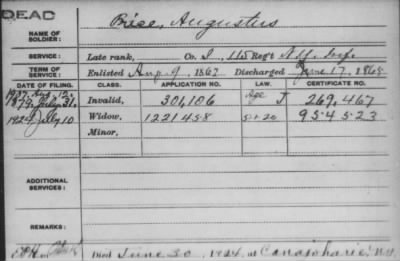 DEAD
Augustus
NAME OF SOLDIER:
SERVICE: Late rank, Co. I, 115 Reg't N.Y. Inf.
TERM OF SERVICE: Enlisted Aug. 9, 1862 Discharged June 17, 1865
DATE OF FILING. CLASS. APPLICATION NO. LAW. CERTIFICATE NO.
1879, July 31. Invalid, 301,106 Age J 269,467
1924 July 10 Widow, 1221458 5-1-20 954523
Minor,
ADDITIONAL SERVICES:
REMARKS:
Died June 30, 1924, at Canajoharie, N.Y.